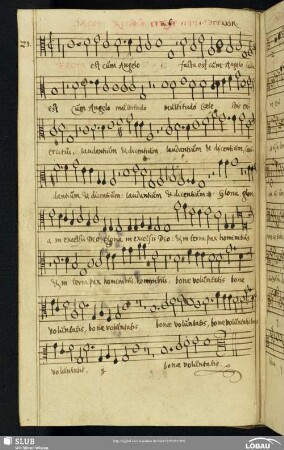 21.
est cum Angelo facta est cum Angelo
est cum Angelo multitudo multitudo cœle
ercitus. laudantium & dicentium. laudantium & dicentium,
dantium & dicentium. laudantium & dicentium Gloria glori
a in excelsis Deo gloria in excelsis Deo. & in terra pax hominibus
& in terra pax hominibus hominibus. bonæ voluntatis bonæ
voluntatis, bonæ voluntatis. bonæ voluntatis, bonæ voluntatis
voluntatis. bonæ voluntatis.
SLUB
Wir führen Wissen.
LOBAU